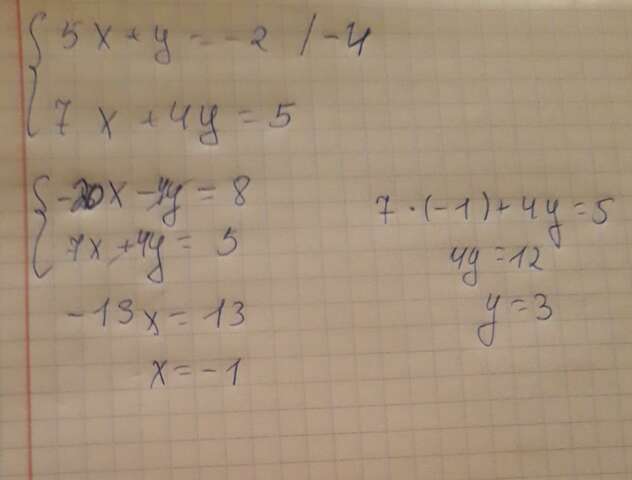 5x+y=-2 /-4
7x+4y=5
-20x-4y=8
7x+4y=5
-13x=13
x=-1
7·(-1)+4y=5
4y=12
y=3